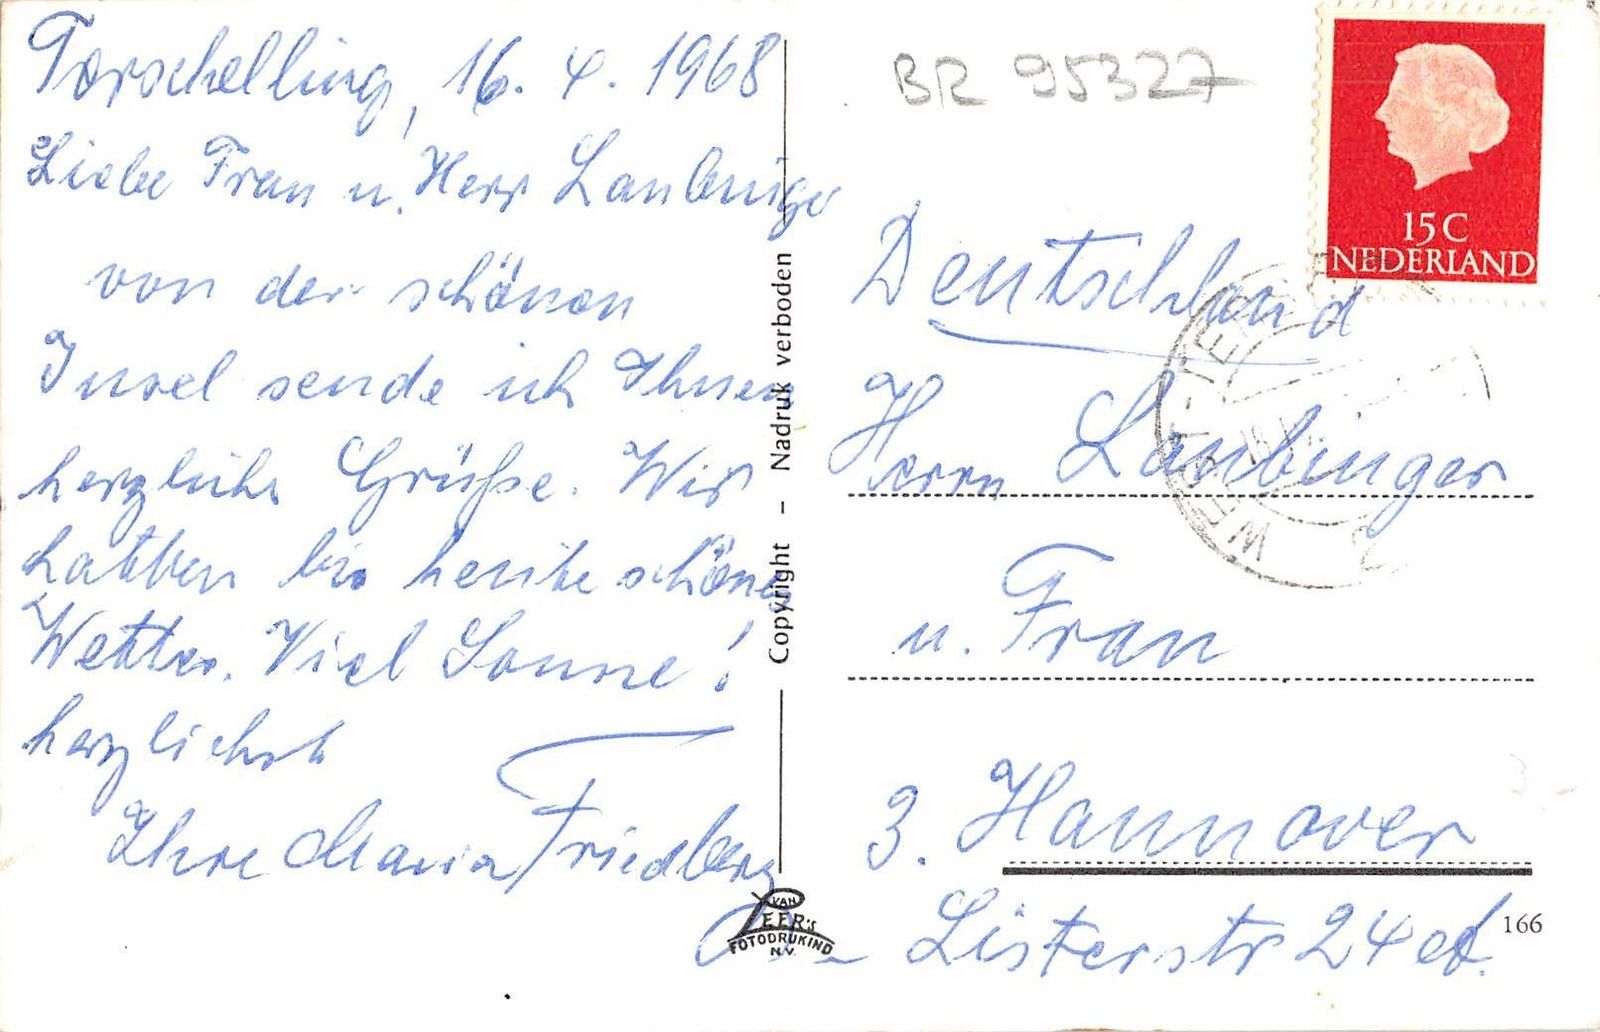 Terschelling, 16. 4. 1968
Liebe Frau u. Herr Laubinger
von der schönen
Insel sende ich Ihnen
herzliche Grüße. Wir
hatten bis heute schönes
Wetter. Viel Sonne!
herzlichst
Ihre Maria Friedberg
Copyright - Nadruk verboden
VAN
LEER's
FOTODRUKIND
N.V.
BR 95327
15 C
NEDERLAND
WEST-TER
Deutschland
Herrn Laubinger
u. Frau
3. Hannover
Listerstr 24
166